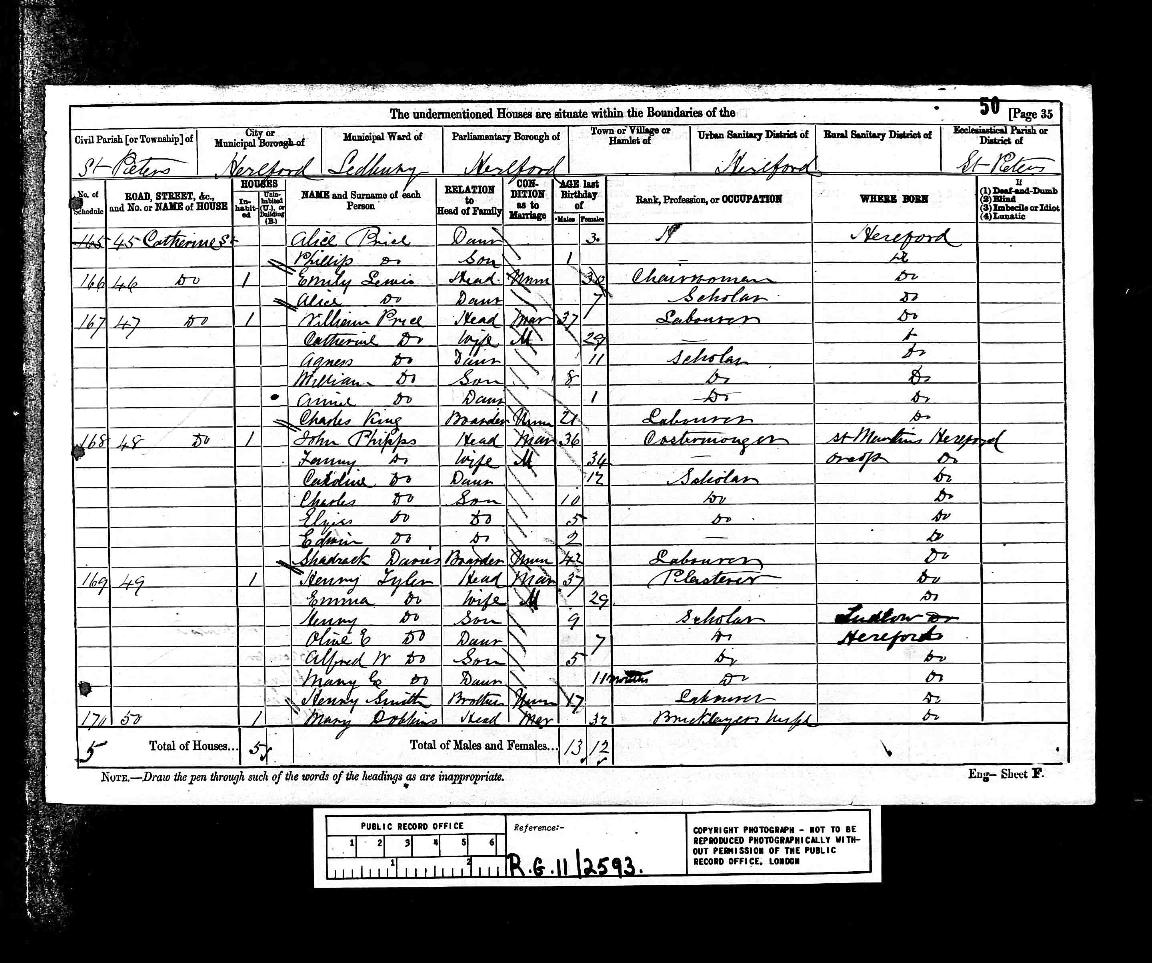 50
The undermentioned Houses are situate within the Boundaries of the [Page 35
Civil Parish [or Township] of City or Municipal Borough of Municipal Ward of Parliamentary Borough of Town or Village or Hamlet of Urban Sanitary District of Rural Sanitary District of Ecclesiastical Parish or District of
St Peters Hereford Ledbury Hereford Hereford St Peters
No. of Schedule ROAD, STREET, &c., and No. or NAME of HOUSE HOUSES In-habit-ed Unin-habited (U.), or Building (B.) NAME and Surname of each Person RELATION to Head of Family CON-DITION as to Marriage AGE last Birthday of Males Females Rank, Profession, or OCCUPATION WHERE BORN If (1) Deaf-and-Dumb (2) Blind (3) Imbecile or Idiot (4) Lunatic
165 45 Catherine St Alice Price Daur 3 Hereford
Phillip Do Son 1 —
166 46 Do 1 Emily Lewis Head Unm 30 Chairwoman Do
Alice Do Daur 7 Scholar Do
167 47 Do 1 William Price Head Mar 37 Labourer Do
Catherine Do Wife M 29 —
Agness Do Daur 11 Scholar Do
William Do Son 8 Do Do
Annie Do Daur 1 Do Do
Charles King Boarder Unm 21 Labourer Do
168 48 Do 1 John Phipps Head Mar 36 Costermonger St Martins Hereford
Fanny Do Wife M 34 — Do
Caroline Do Daur 12 Scholar Do
Charles Do Son 10 Do Do
Do Do 5 Do Do
Edwin Do Do 2 — Do
Shadrack Davies Boarder Unm 42 Labourer Do
169 49 1 Henry Tyler Head Mar 37 Plasterer Do
Emma Do Wife M 29 Do
Henry Do Son 9 Scholar Ludlow Do
Olive E Do Daur 7 Do Hereford
Alfred W Do Son 5 Do Do
Mary E Do Daur 11 months Do Do
Henry Smith Brother Unm 17 Labourer Do
170 50 1 Mary Dobbins Head Mar 32 Bricklayers Do
5 Total of Houses... 5 Total of Males and Females... 13 12
NOTE.—Draw the pen through such of the words of the headings as are inappropriate. Eng— Sheet F.
PUBLIC RECORD OFFICE
1 2 3 4 5 6
1 2
Reference:-
R.G. 11/2593.
COPYRIGHT PHOTOGRAPH - NOT TO BE
REPRODUCED PHOTOGRAPHICALLY WITH-
OUT PERMISSION OF THE PUBLIC
RECORD OFFICE, LONDON